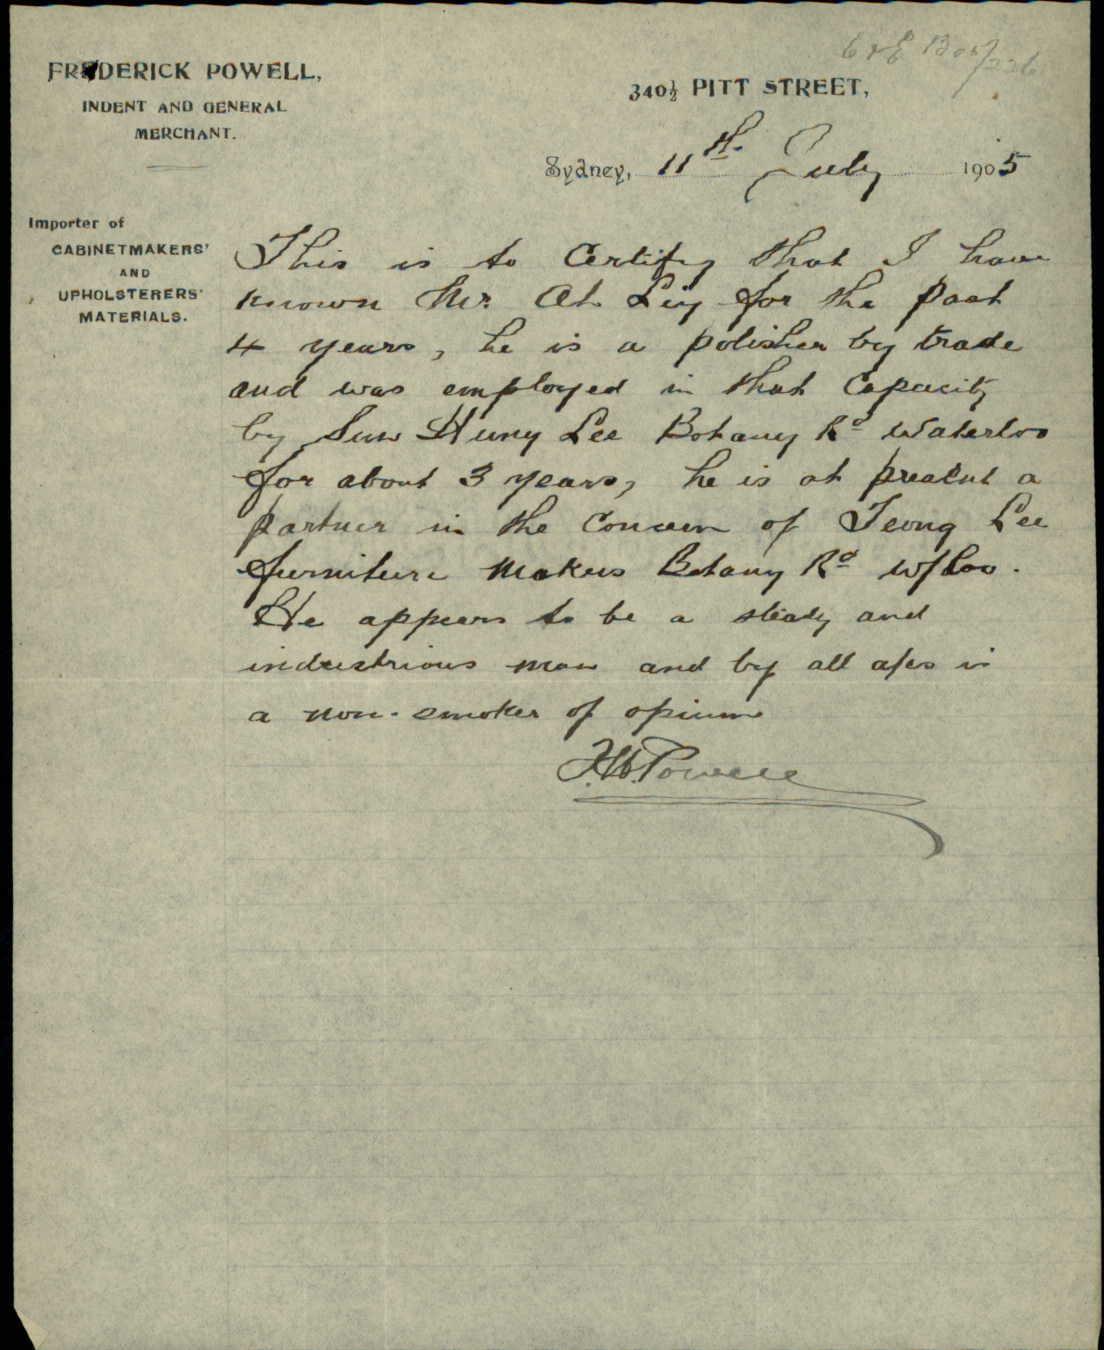 FREDERICK POWELL,
INDENT AND GENERAL
MERCHANT.
340½ PITT STREET,
Sydney, 11th July 1905
Importer of
CABINETMAKERS'
AND
UPHOLSTERERS'
MATERIALS.
This is to Certify that I have
known Mr. Ah Ley for the past
4 years, he is a polisher by trade
and was employed in that Capacity
by Sun Hung Lee Botany Rd Waterloo
for about 3 years, he is at present a
partner in the Concern of Teong Lee
furniture Makers Botany Rd W/loo.
He appears to be a steady and
industrious man and by all a/cs is
a non-smoker of opium
F.W. Powell